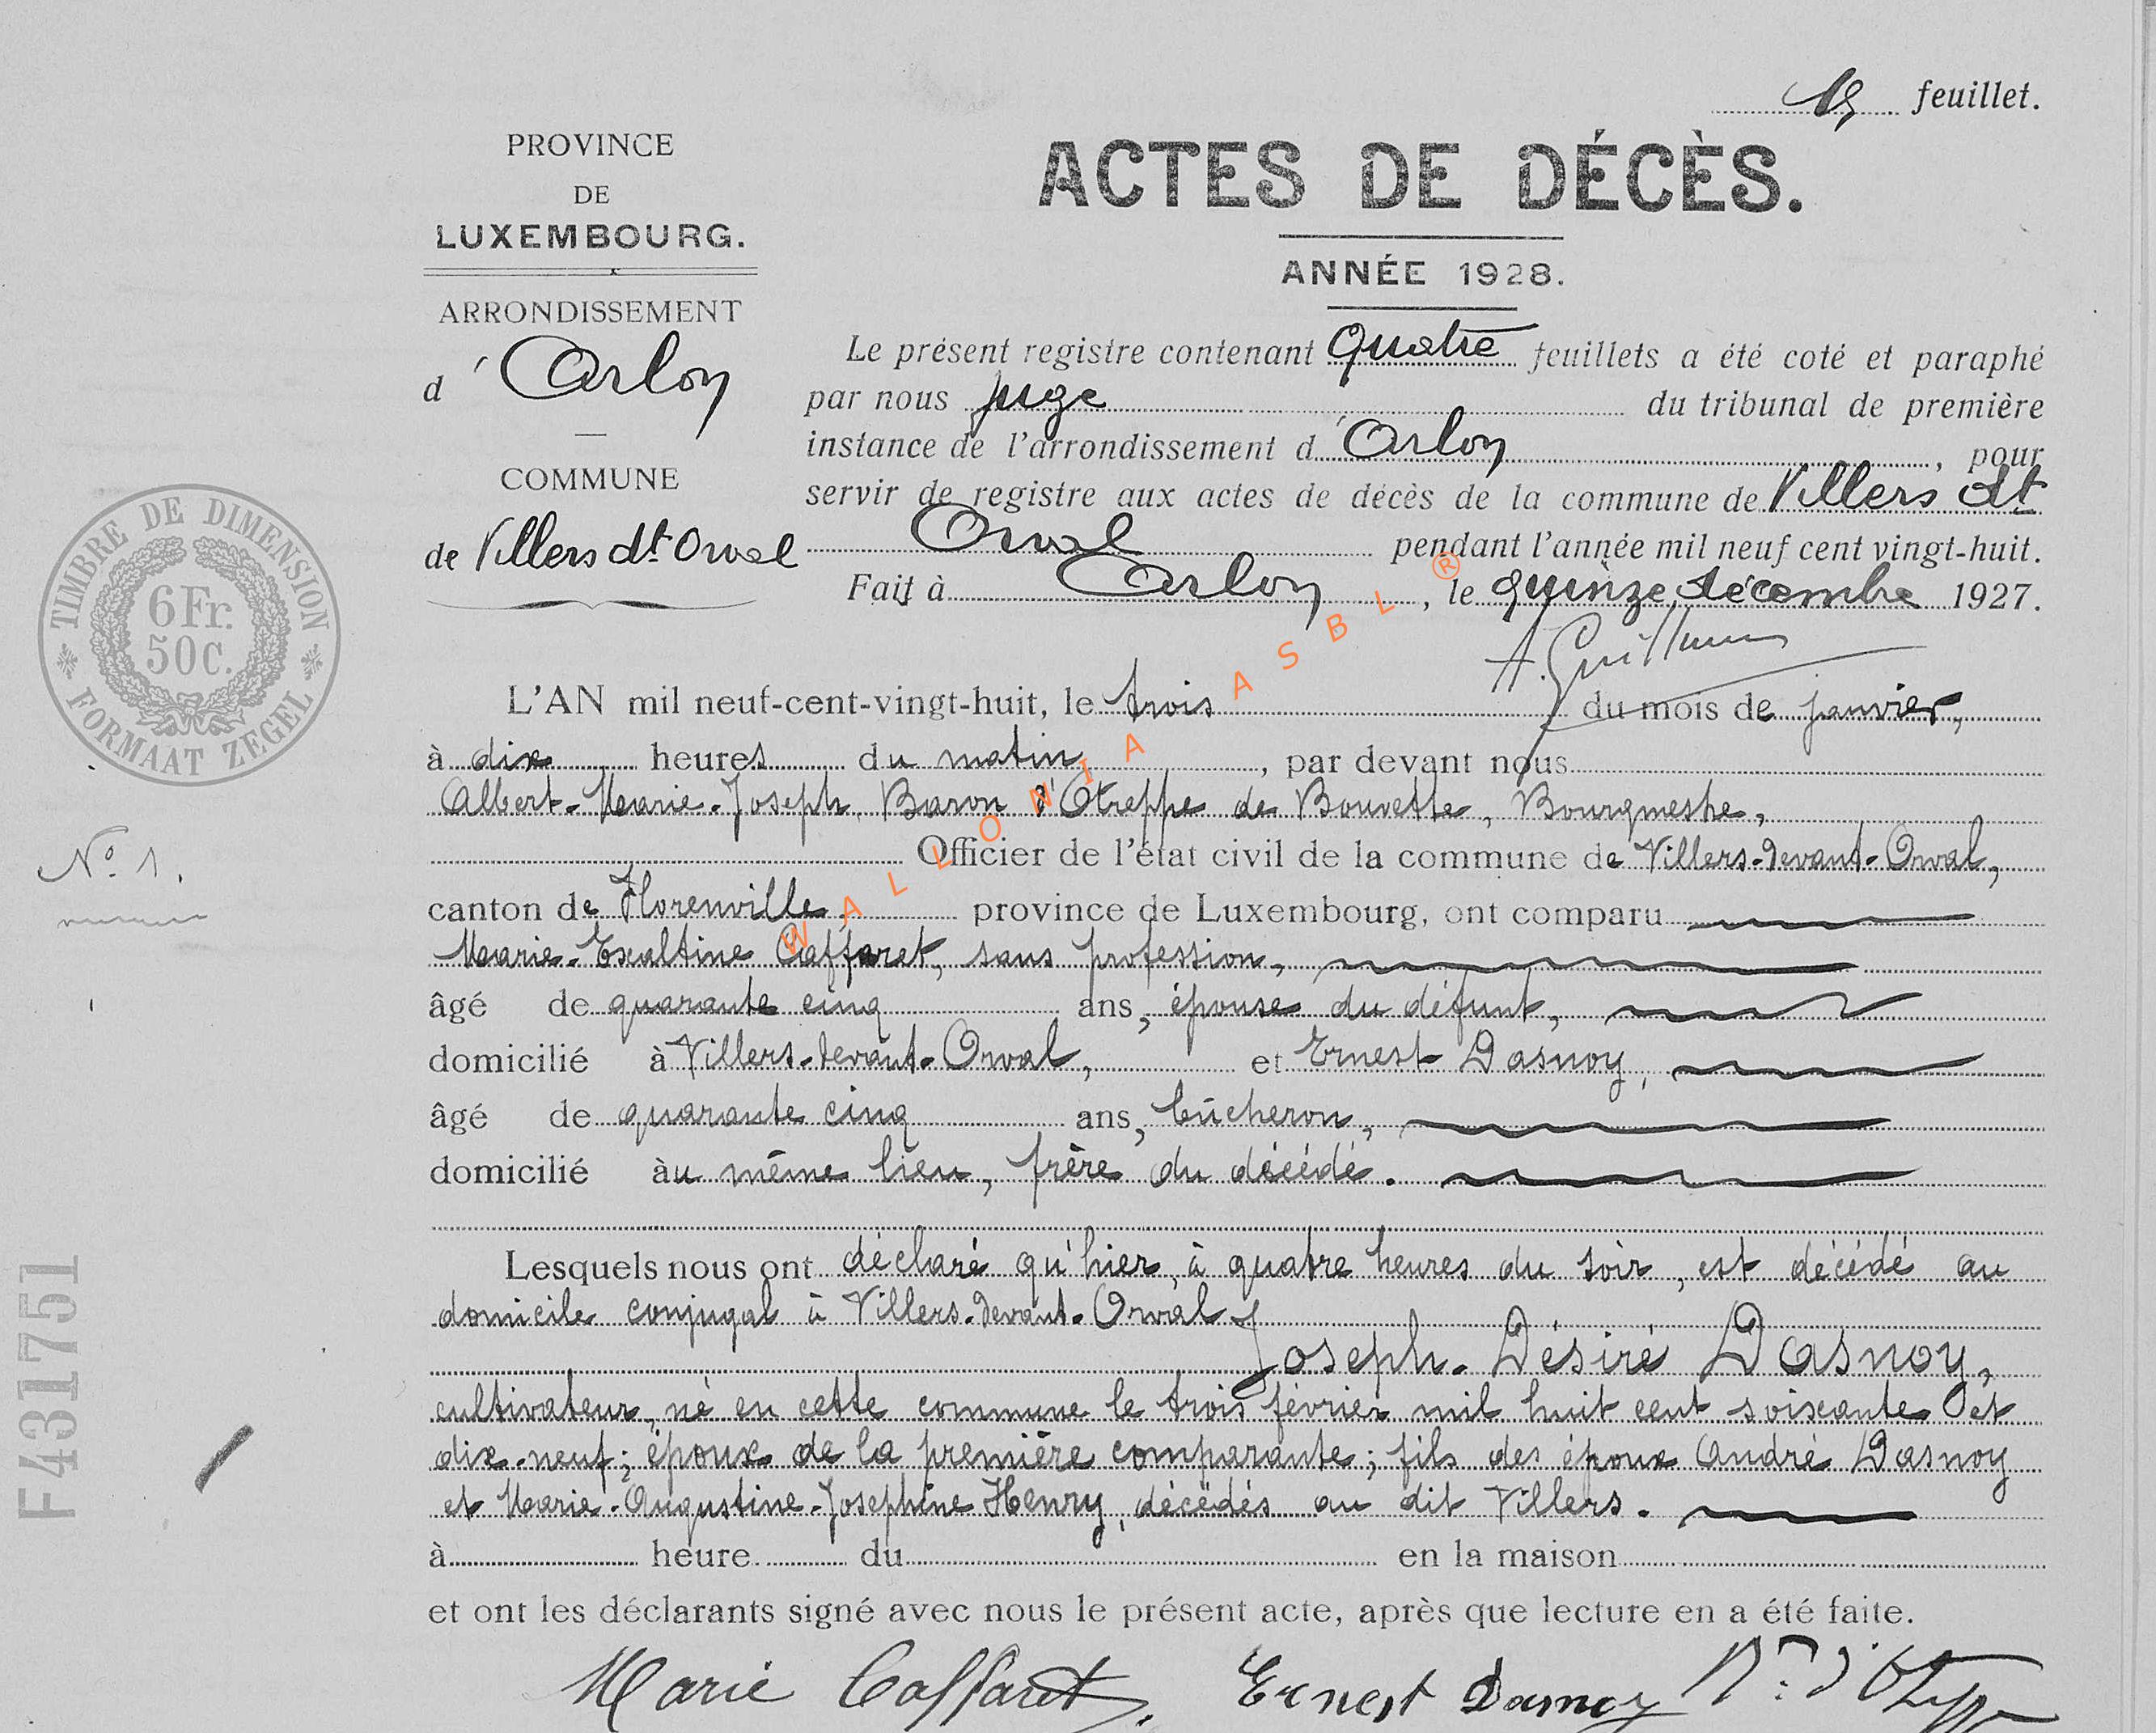 1er feuillet.
PROVINCE
DE
LUXEMBOURG.
ARRONDISSEMENT
d'Arlon
COMMUNE
de Villers dt Orval
ACTES DE DÉCÈS.
ANNÉE 1928.
Le présent registre contenant Quatre feuillets a été coté et paraphé
par nous juge du tribunal de première
instance de l'arrondissement d'Arlon, pour
servir de registre aux actes de décès de la commune de Villers dt
Orval pendant l'année mil neuf cent vingt-huit.
Fait à Arlon, le quinze décembre 1927.
TIMBRE DE DIMENSION
6 Fr.
50 C.
FORMAAT ZEGEL
L'AN mil neuf-cent-vingt-huit, le trois du mois de janvier,
à dix heures du matin, par devant nous
Albert-Marie-Joseph, Baron d'Otreppe de Bouvette, Bourgmestre,
Officier de l'état civil de la commune de Villers-devant-Orval,
No. 1.
canton de Florenville province de Luxembourg, ont comparu
Marie-Exaltine Caffaret, sans profession,
âgé de quarante cinq ans, épouse du défunt,
domicilié à Villers-devant-Orval, et Ernest Dasnoy,
âgé de quarante cinq ans, bûcheron,
domicilié àu même lieu, frère du décédé.
Lesquels nous ont déclaré qu'hier, à quatre heures du soir, est décédé au
domicile conjugal à Villers-devant-Orval
Joseph-Désiré Dasnoy,
cultivateur, né en cette commune le trois février mil huit cent soixante et
dix-neuf; époux de la première comparante; fils des époux André Dasnoy
et Marie-Augustine-Joséphine Henry, décédés au dit Villers.
à heure du en la maison
et ont les déclarants signé avec nous le présent acte, après que lecture en a été faite.
Marie Caffaret. Ernest Dasnoy Bn d'Otreppe
F431751
WALLONIA ASBL ®